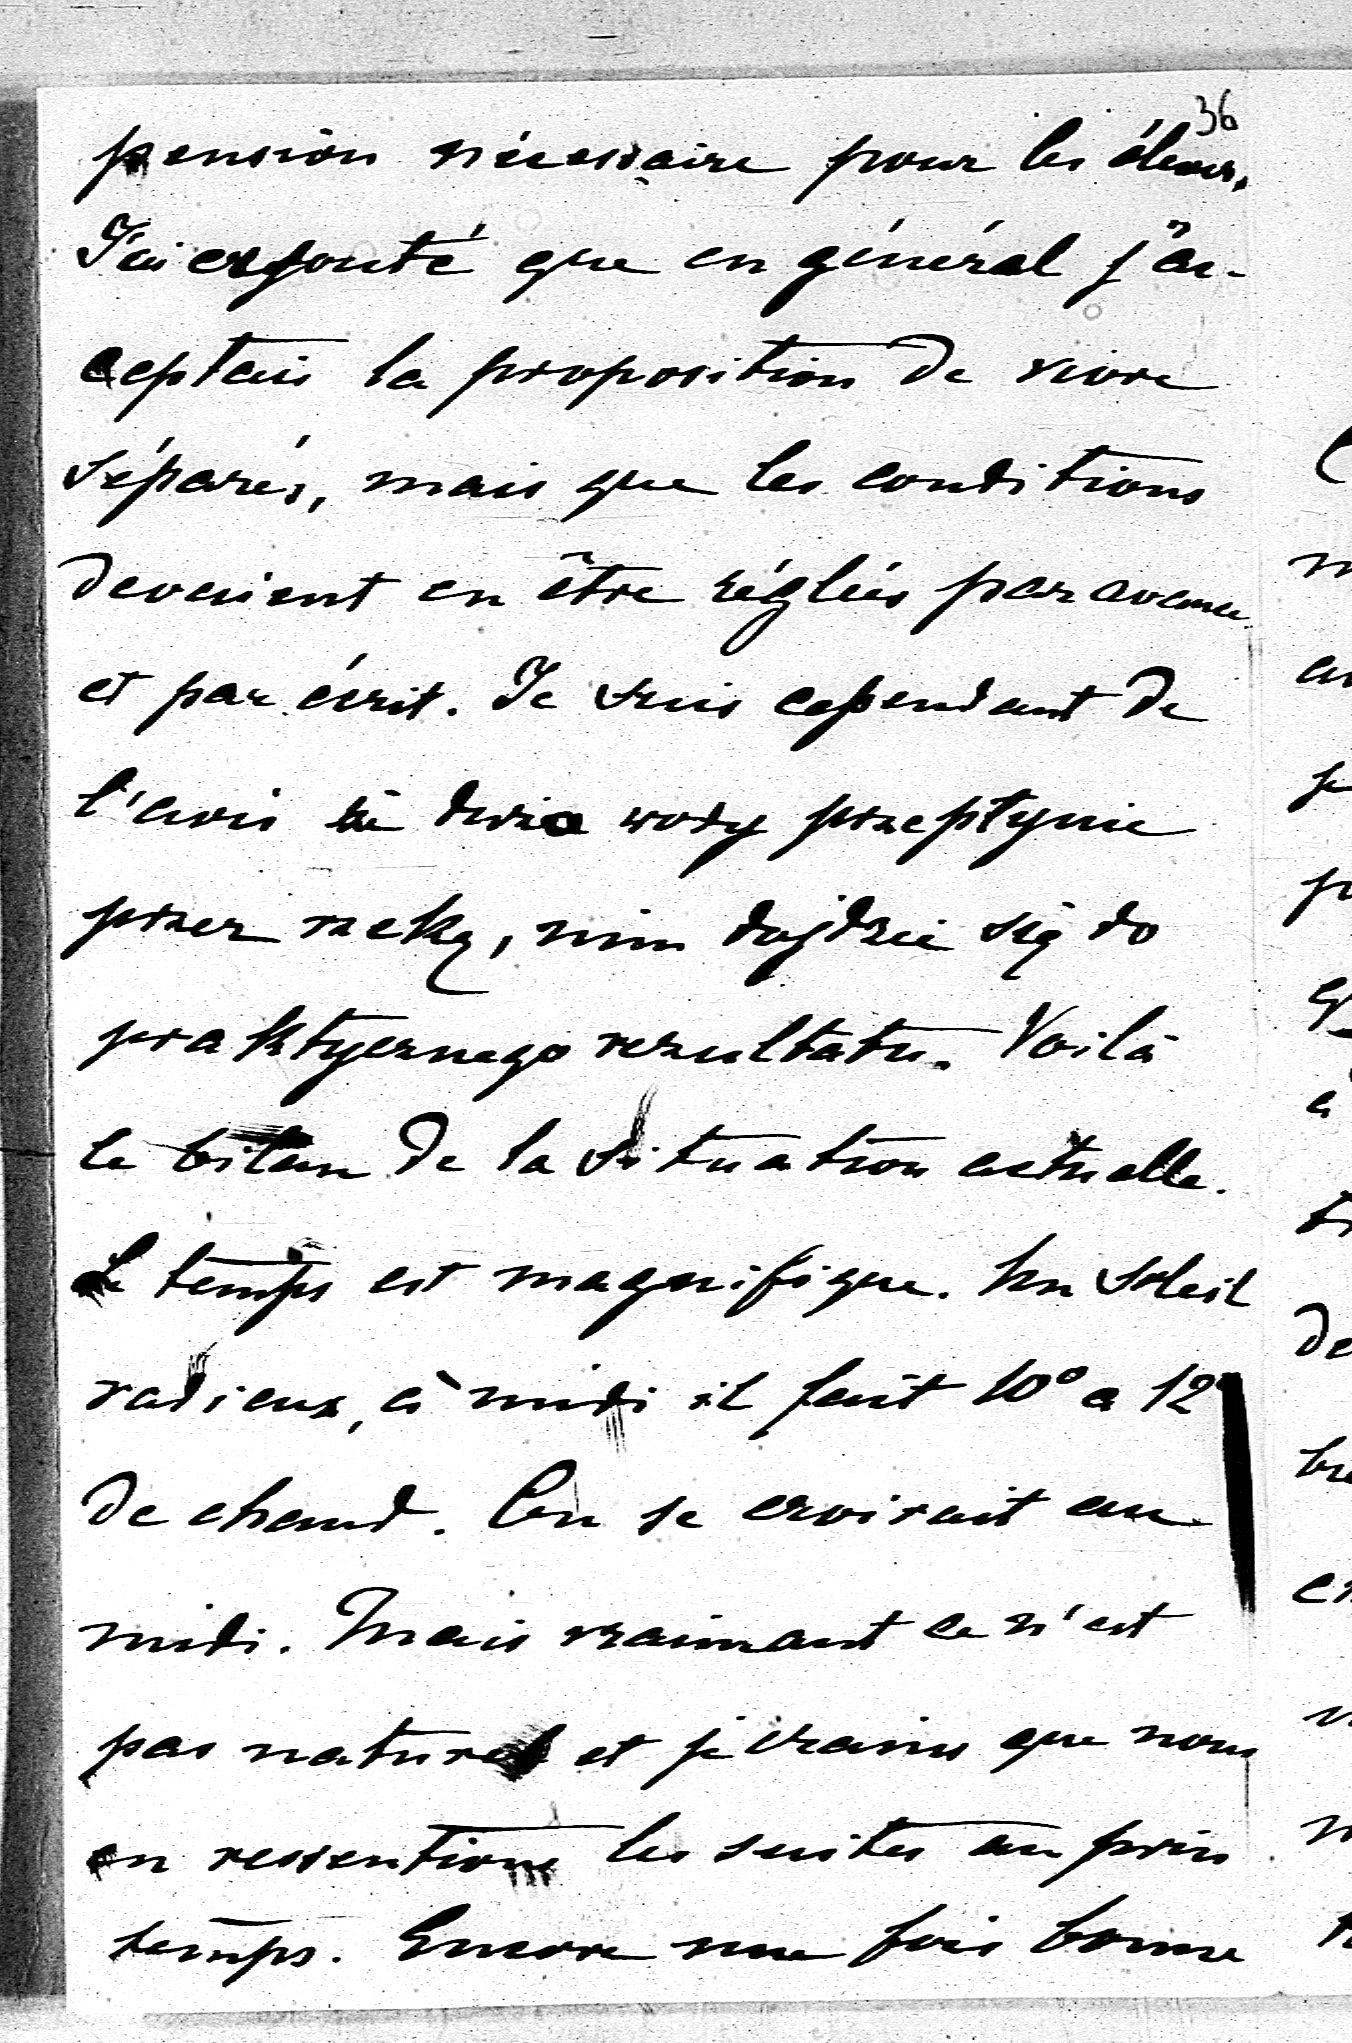 36
pension nécessaire pour les élever.
J'ai ajouté que en général j'ac-
ceptais la proposition de vivre
séparés, mais que les conditions
devaient en être réglées par avance
et par écrit. Je suis cependant de
l'avis że dużo wody przepłynie
przez rzekę, nim dojdzie się do
praktycznego rezultatu. Voilà
le bilan de la situation actuelle.
Le temps est magnifique. Un soleil
radieux, à midi il fait 10° a 12°
de chaud. On se croirait au
midi. Mais vraimant ce n'est
pas naturel et je crains que nous
en ressentions les suites au prin
temps. Encore une fois bonne